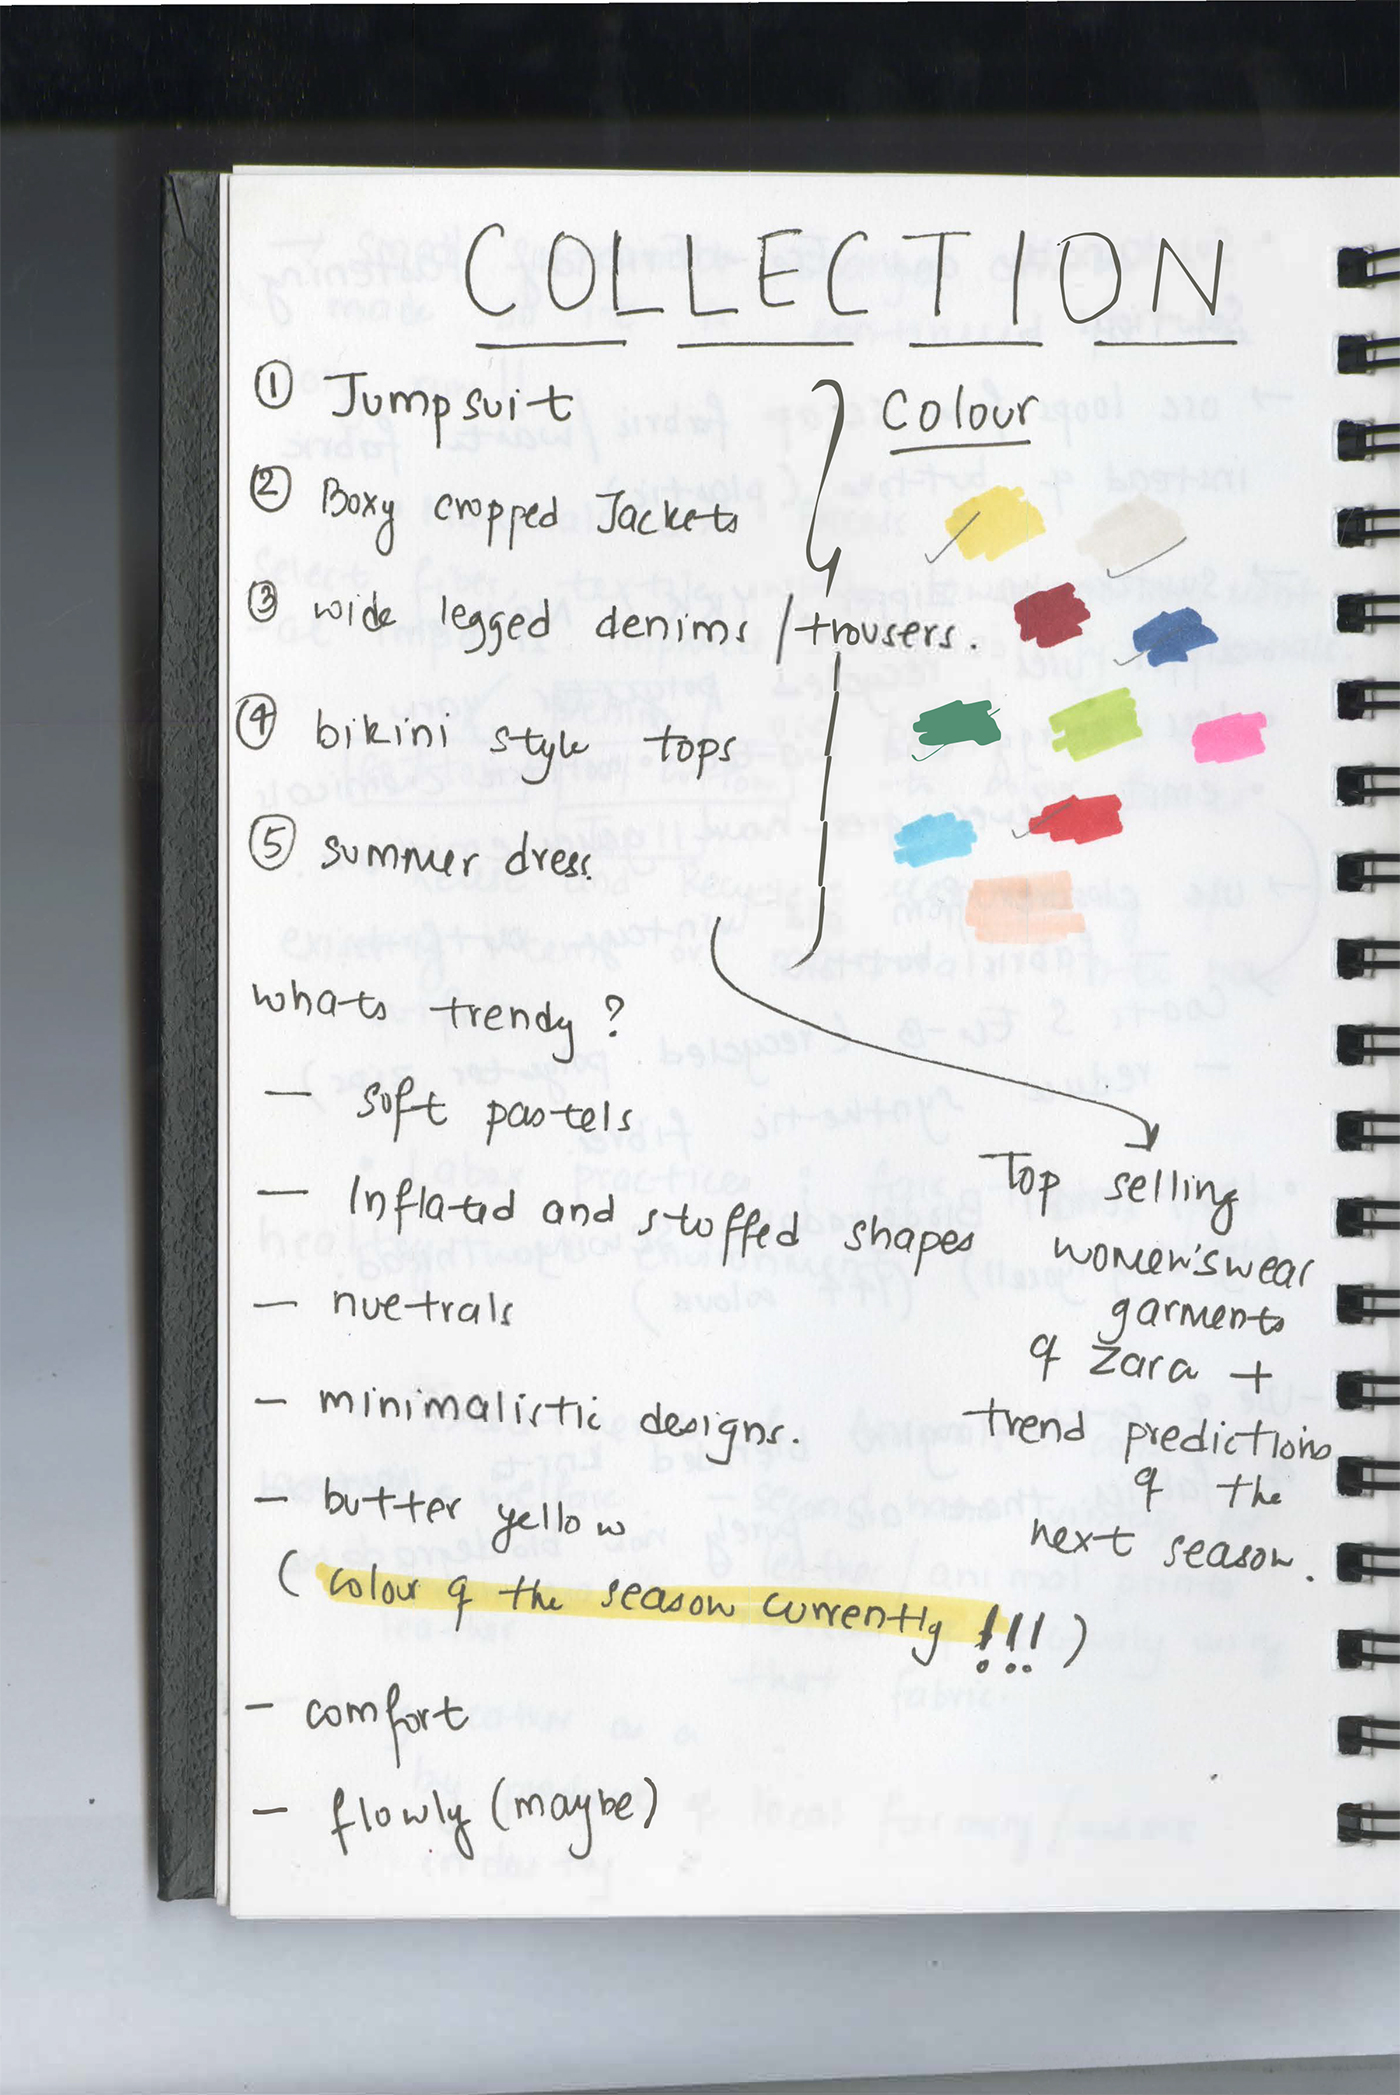 COLLECTION
① Jumpsuit
② Boxy cropped Jackets
③ wide legged denims / trousers.
④ bikini style tops
⑤ summer dress.
Colour
whats trendy ?
— soft pastels
— Inflated and stuffed shapes
— nuetrals
— minimalistic designs.
— butter yellow
( colour of the season currently !!! )
— comfort
— flowly (maybe)
Top selling
women's wear
garments
of Zara +
trend predictions
of the
next season.